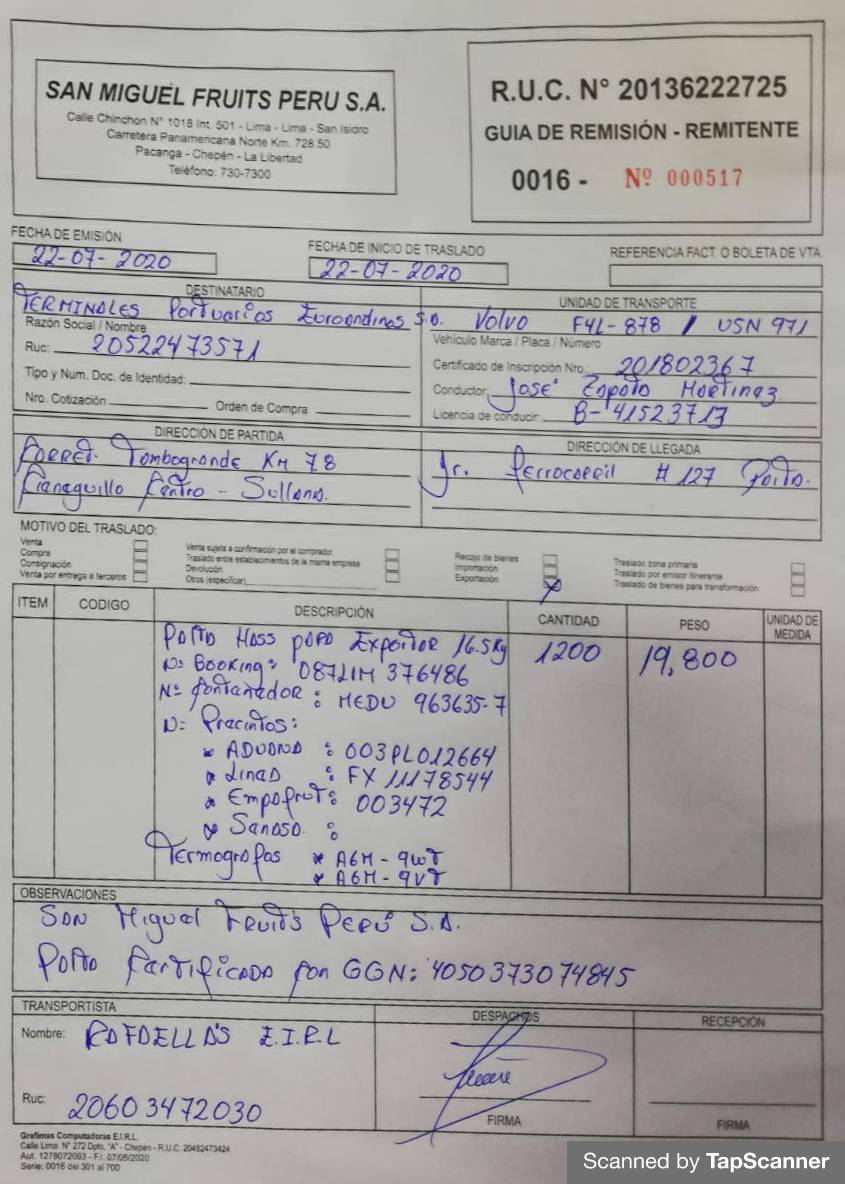 SAN MIGUEL FRUITS PERU S.A.
Calle Chinchon N° 1018 Int. 501 - Lima - Lima - San Isidro
Carretera Panamericana Norte Km. 728.50
Pacanga - Chepén - La Libertad
Teléfono: 730-7300
R.U.C. N° 20136222725
GUIA DE REMISIÓN - REMITENTE
0016 - Nº 000517
FECHA DE EMISIÓN
22-07-2020
FECHA DE INICIO DE TRASLADO
22-07-2020
REFERENCIA FACT. O BOLETA DE VTA.
DESTINATARIO
TERMINALES Portuarios Euroandinos S.A.
Razón Social / Nombre
Ruc: 20522473571
Tipo y Num. Doc. de Identidad:
Nro. Cotización Orden de Compra
UNIDAD DE TRANSPORTE
Volvo F4L-878 / USN 971
Vehículo Marca / Placa / Número
Certificado de Inscripción Nro.: 201802367
Conductor: José Zapata Martinez
Licencia de conducir B-41523713
DIRECCIÓN DE PARTIDA
Tambogrande KM 78
Centro - Sullana.
DIRECCIÓN DE LLEGADA
Jr. Ferrocarril # 127 Paita.
MOTIVO DEL TRASLADO:
Venta
Compra
Consignación
Venta por entrega a terceros
Venta sujeta a confirmación por el comprador
Traslado entre establecimientos de la misma empresa
Devolución
Otros (especificar)
Recojo de bienes
Importación
Exportación X
Traslado zona primaria
Traslado por emisor itinerante
Traslado de bienes para transformación
ITEM CODIGO DESCRIPCIÓN CANTIDAD PESO UNIDAD DE MEDIDA
Palta Hass para Exportar 16.5Kg 1200 19,800
Nº Booking: 087LIM 376486
Nº Contenedor: MEDU 963635-7
Nº Precintos:
* ADUANA : 003PL012664
* Linea : FX 11178544
* Empafrut: 003472
* Sanasa :
Termografos * A6M-9WT
* A6M-9VT
OBSERVACIONES
San Miguel Fruits Perú S.A.
Palta Certificada con GGN: 4050373074845
TRANSPORTISTA
Nombre: RAFAELLA'S E.I.R.L
Ruc: 20603472030
DESPACHOS
FIRMA
RECEPCIÓN
FIRMA
Grafimas Computadoras E.I.R.L.
Calle Lima N° 272 Dpto. "A" - Chepén - R.U.C. 20482473424
Aut. 1278072063 - F.I. 07/05/2020
Serie: 0016 del 301 al 700
Scanned by TapScanner